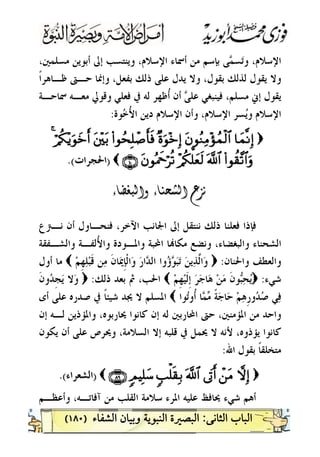 فوزى محمد أبوزيد
أمراض الأمة وبصيرة النبوة
الإسلام، وتسمَّى بإسم من أسماء الإسلام، وينتسب إلى أبوين مسلمين،
ولا يقول لذلك بقول، ولا يدل على ذلك بفعل، وإنما حتى ظاهراً
يقول إني مسلم، فينبغي علىَّ أن أُظهر له في فعلي وقولي معه سماحة
الإسلام ويُسر الإسلام، وأن الإسلام دين الأُخُوة:
﴿ إِنَّمَا ٱلْمُؤْمِنُونَ إِخْوَةٌ فَأَصْلِحُوا۟ بَيْنَ أَخَوَيْكُمْ ۚ
وَٱتَّقُوا۟ ٱللَّهَ لَعَلَّكُمْ تُرْحَمُونَ ﴿١٠﴾ ﴾ (الحجرات).
نزع الشحناء والبغضاء
فإذا فعلنا ذلك ننتقل إلى الجانب الآخر، فنحاول أن ننزع
الشحناء والبغضاء، ونضع مكانها المحبة والمودة والأُلفة والشفقة
والعطف والحنان: ﴿ وَٱلَّذِينَ تَبَوَّءُو ٱلدَّارَ وَٱلْإِيمَٰنَ مِن قَبْلِهِمْ ﴾ ما أول
شيء: ﴿ يُحِبُّونَ مَنْ هَاجَرَ إِلَيْهِمْ ﴾ الحب، ثم بعد ذلك: ﴿ وَلَا يَجِدُونَ
فِي صُدُورِهِمْ حَاجَةً مِّمَّآ أُوتُوا۟ ﴾ المسلم لا يجد شيئاً في صدره على أى
واحد من المؤمنين، حتى المحاربين له إن كانوا يحاربوه، والمؤذين له إن
كانوا يؤذوه، لأنه لا يحمل في قلبه إلا السلامة، ويحرص على أن يكون
متخلقاً بقول الله:
﴿ إِلَّا مَنْ أَتَى ٱللَّهَ بِقَلْبٍ سَلِيمٍ ﴿٨٩﴾ ﴾ (الشعراء).
أهم شيء يحافظ عليه المرء سلامة القلب من آفاته، وأعظم
الباب الثانى: البصيرة النبوية وبيان الشفاء (١٨٠)